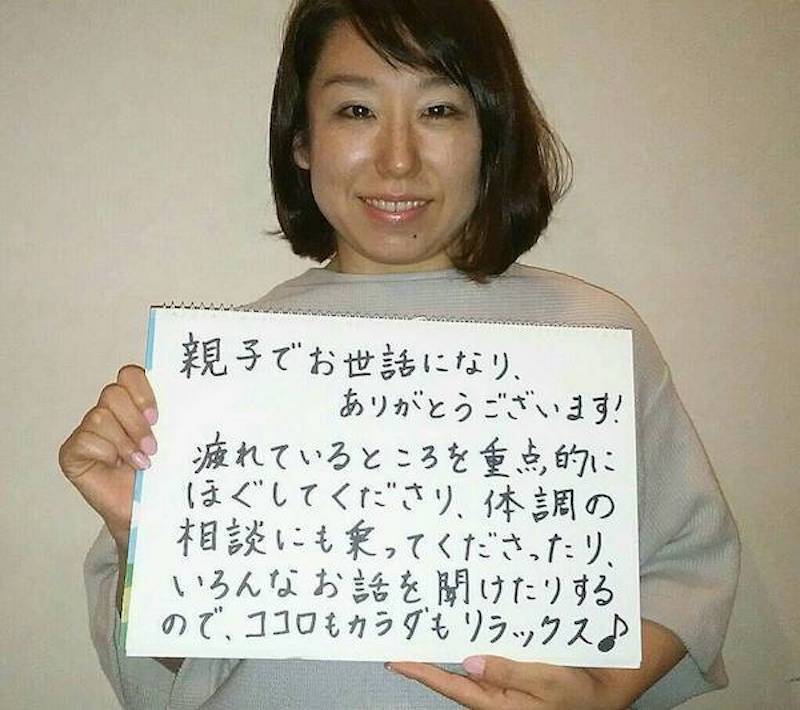 親子でお世話になり、
ありがとうございます!
疲れているところを重点的に
ほぐしてくださり、体調の
相談にも乗ってくださったり、
いろんなお話を聞けたりする
ので、ココロもカラダもリラックス♪